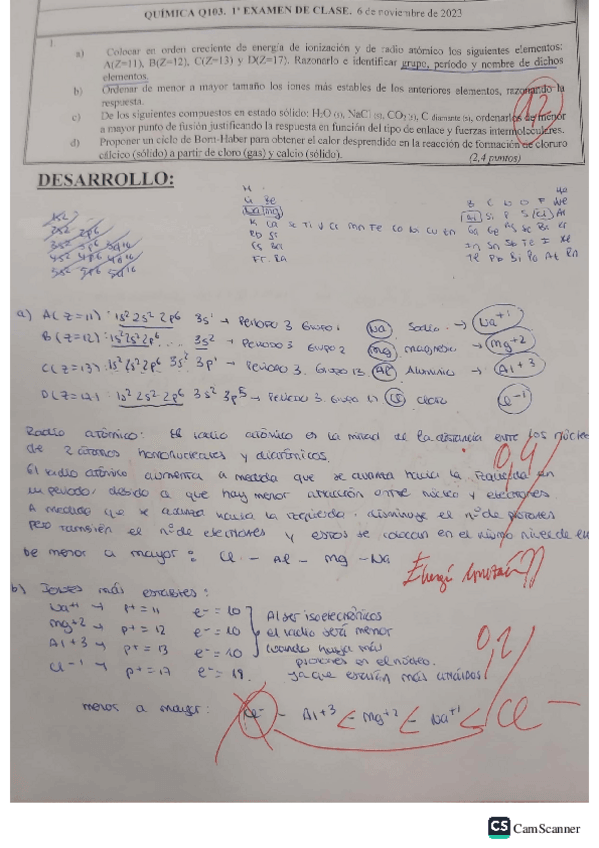 QUÍMICA Q103. 1º EXAMEN DE CLASE. 6 de noviembre de 2023
a) Colocar en orden creciente de energía de ionización y de radio atómico los siguientes elementos:
A(Z=11), B(Z=12), C(Z=13) y D(Z=17). Razonarlo e identificar grupo, período y nombre de dichos
elementos.
b) Ordenar de menor a mayor tamaño los iones más estables de los anteriores elementos, razonando la
respuesta.
c) De los siguientes compuestos en estado sólido: H2O (s), NaCl (s), CO2 (s), C diamante (s), ordenarlos de menor
a mayor punto de fusión justificando la respuesta en función del tipo de enlace y fuerzas intermoleculares.
d) Proponer un ciclo de Born-Haber para obtener el calor desprendido en la reacción de formación de cloruro
cálcico (sólido) a partir de cloro (gas) y calcio (sólido). (2,4 puntos)
1,2
DESARROLLO:
H He
Li Be B C N O F Ne
Na Mg Si P S Cl Ar
K Ca Sc Ti V Cr Mn Fe Co Ni Cu Zn Ga Ge As Se Br Kr
Rb Sr In Sn Sb Te I Xe
Cs Ba Tl Pb Bi Po At Rn
Fr Ra
a) A(Z=11): 1s² 2s² 2p⁶ 3s¹ → Periodo 3 Grupo 1 Na Sodio → Na⁺¹
B(Z=12): 1s² 2s² 2p⁶ 3s² → Periodo 3 Grupo 2 Mg magnesio → Mg⁺²
C(Z=13): 1s² 2s² 2p⁶ 3s² 3p¹ → Periodo 3 Grupo 13 Al Aluminio → Al⁺³
D(Z=17): 1s² 2s² 2p⁶ 3s² 3p⁵ → Periodo 3 Grupo 17 Cl cloro Cl⁻¹
Radio atómico: El radio atómico es la mitad de la distancia entre los núcleos
de 2 átomos homonucleares y diatómicos.
0,4
El radio atómico aumenta a medida que se avanza hacia la izquierda en
un periodo, debido a que hay menor atracción entre núcleo y electrones
A medida que se avanza hacia la izquierda disminuye el nº de protones
pero también el nº de electrones y estos se colocan en el mismo nivel de en
de menor a mayor: Cl - Al - Mg - Na
b) Iones más estables:
Na⁺¹ → p⁺ = 11 e⁻ = 10 Al ser isoelectrónicos
Mg⁺² → p⁺ = 12 e⁻ = 10 el radio será menor
Al⁺³ → p⁺ = 13 e⁻ = 10 cuando haya más
protones en el núcleo.
Cl⁻¹ → p⁺ = 17 e⁻ = 18 ya que estarán más atraídos
0,2
menor a mayor: Cl⁻ - Al⁺³ < Mg⁺² < Na⁺¹ < Cl⁻
CS CamScanner